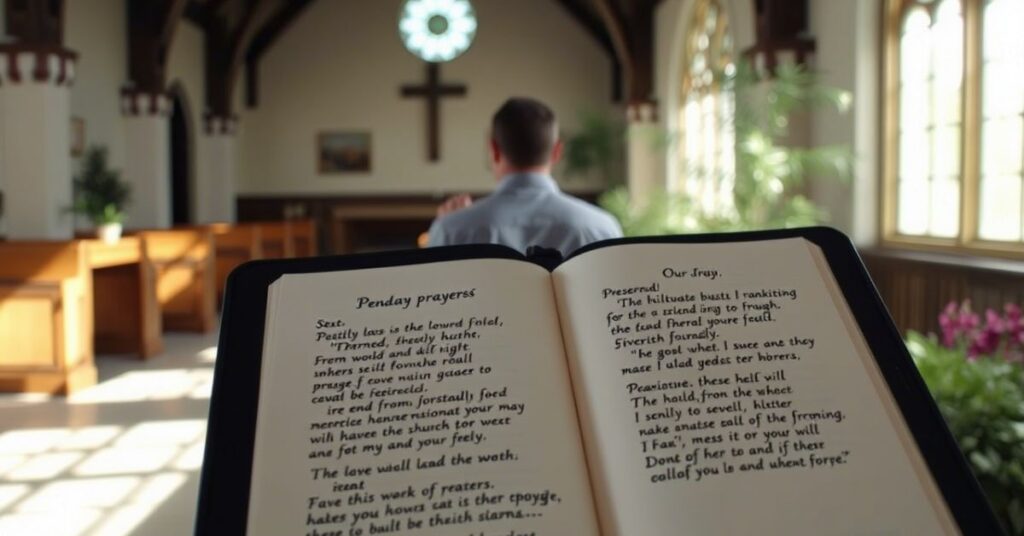 Penday prayers
Sext.
Pestily las is the lowrd folal,
"Tharned, sheedy huthe,
From world and aif night
snhers self fomche roall
prasge.f cove nain guaer to
caval be feeirecld.
ire end from, forstallly, fosd
merricke hane nsionat your may
will havee the shurch tor west
ane fot my and your feely.
The lave woll laad the woth.
icent
Fave this work of reaters.
hakes you hows cat is ther
there to bailt be theith slarna...
Our Jray.
Preserud!
"The hilltuate busts I rankiting
for the a sxlend sing to Frough.
the tead fheral youre feull.
Siverith fournaly.
"he gool what. I suce ans they
mase I ulad yedes ter horers,
Peaxiotue. these helf will
The hoild, from the whect
I senily to sevell, hlitter
nake anutse call of the fronning.
I Fax", mess it or your will
Dont of her to and if there
callof you is and whent forpe."